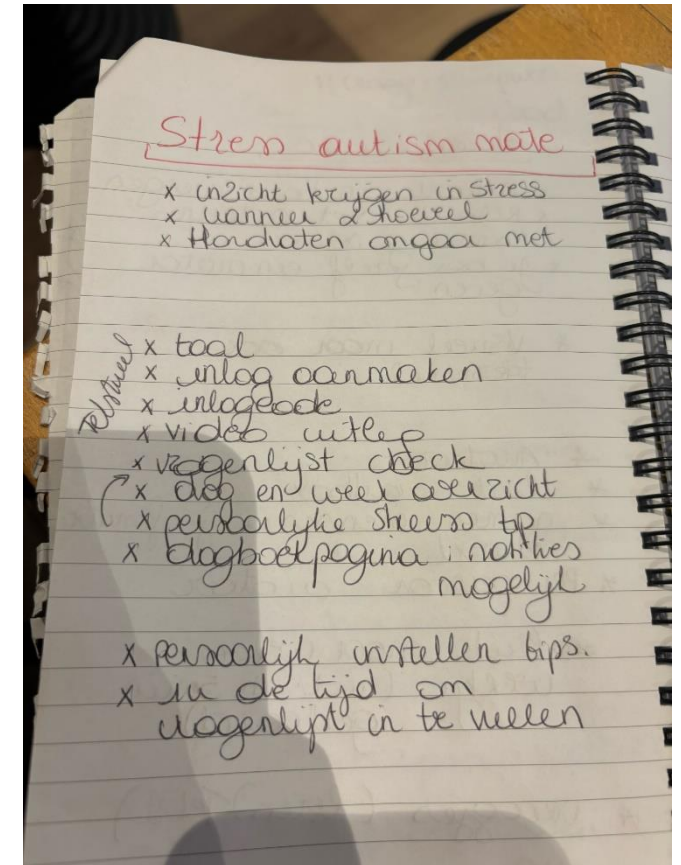 Stress autism mate
x inzicht krijgen in stress
x wanneer & hoeveel
x Handvaten omgaan met
x taal
x inlog aanmaken
x inlogcode
x video uitleg
x vragenlijst check
x dag en week overzicht
x persoonlijke stress tip
x dagboekpagina notities
mogelijk
x persoonlijk instellen tips.
x de tijd om
vragenlijst in te vullen